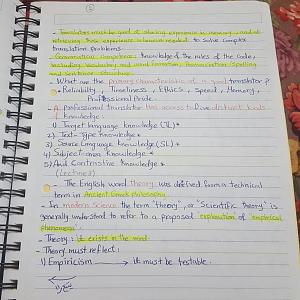 - Translators must be good at storing experience in memory, and at retrieving those experience whenever needed to solve complex translation problems.
- Grammatical Competence: Knowledge of the rules of the code, including vocabulary and word formation, pronunciation, spelling and sentence structure.
- What are the primary characteristics of a good translator?
Reliability, Timeliness, Ethics, Speed, Memory,
Proffesional Pride.
- A professional translator has access to five distinct kinds of knowledge:
1) Target language knowledge (TL)*
2) Text-Type Knowledge*
3) Source Language Knowledge (SL)*
4) Subject-area Knowledge*
5) And Contrastive Knowledge*
(Lecture 3)
- The English word theory was derived from a technical term in Ancient Greek philosophy.
- In modern science the term "theory", or "Scientific theory" is generally understood to refer to a proposed explanation of empirical phenomena.
- Theory: it exists in the mind.
- Theory must reflect:
1) Empiricism → it must be testable.